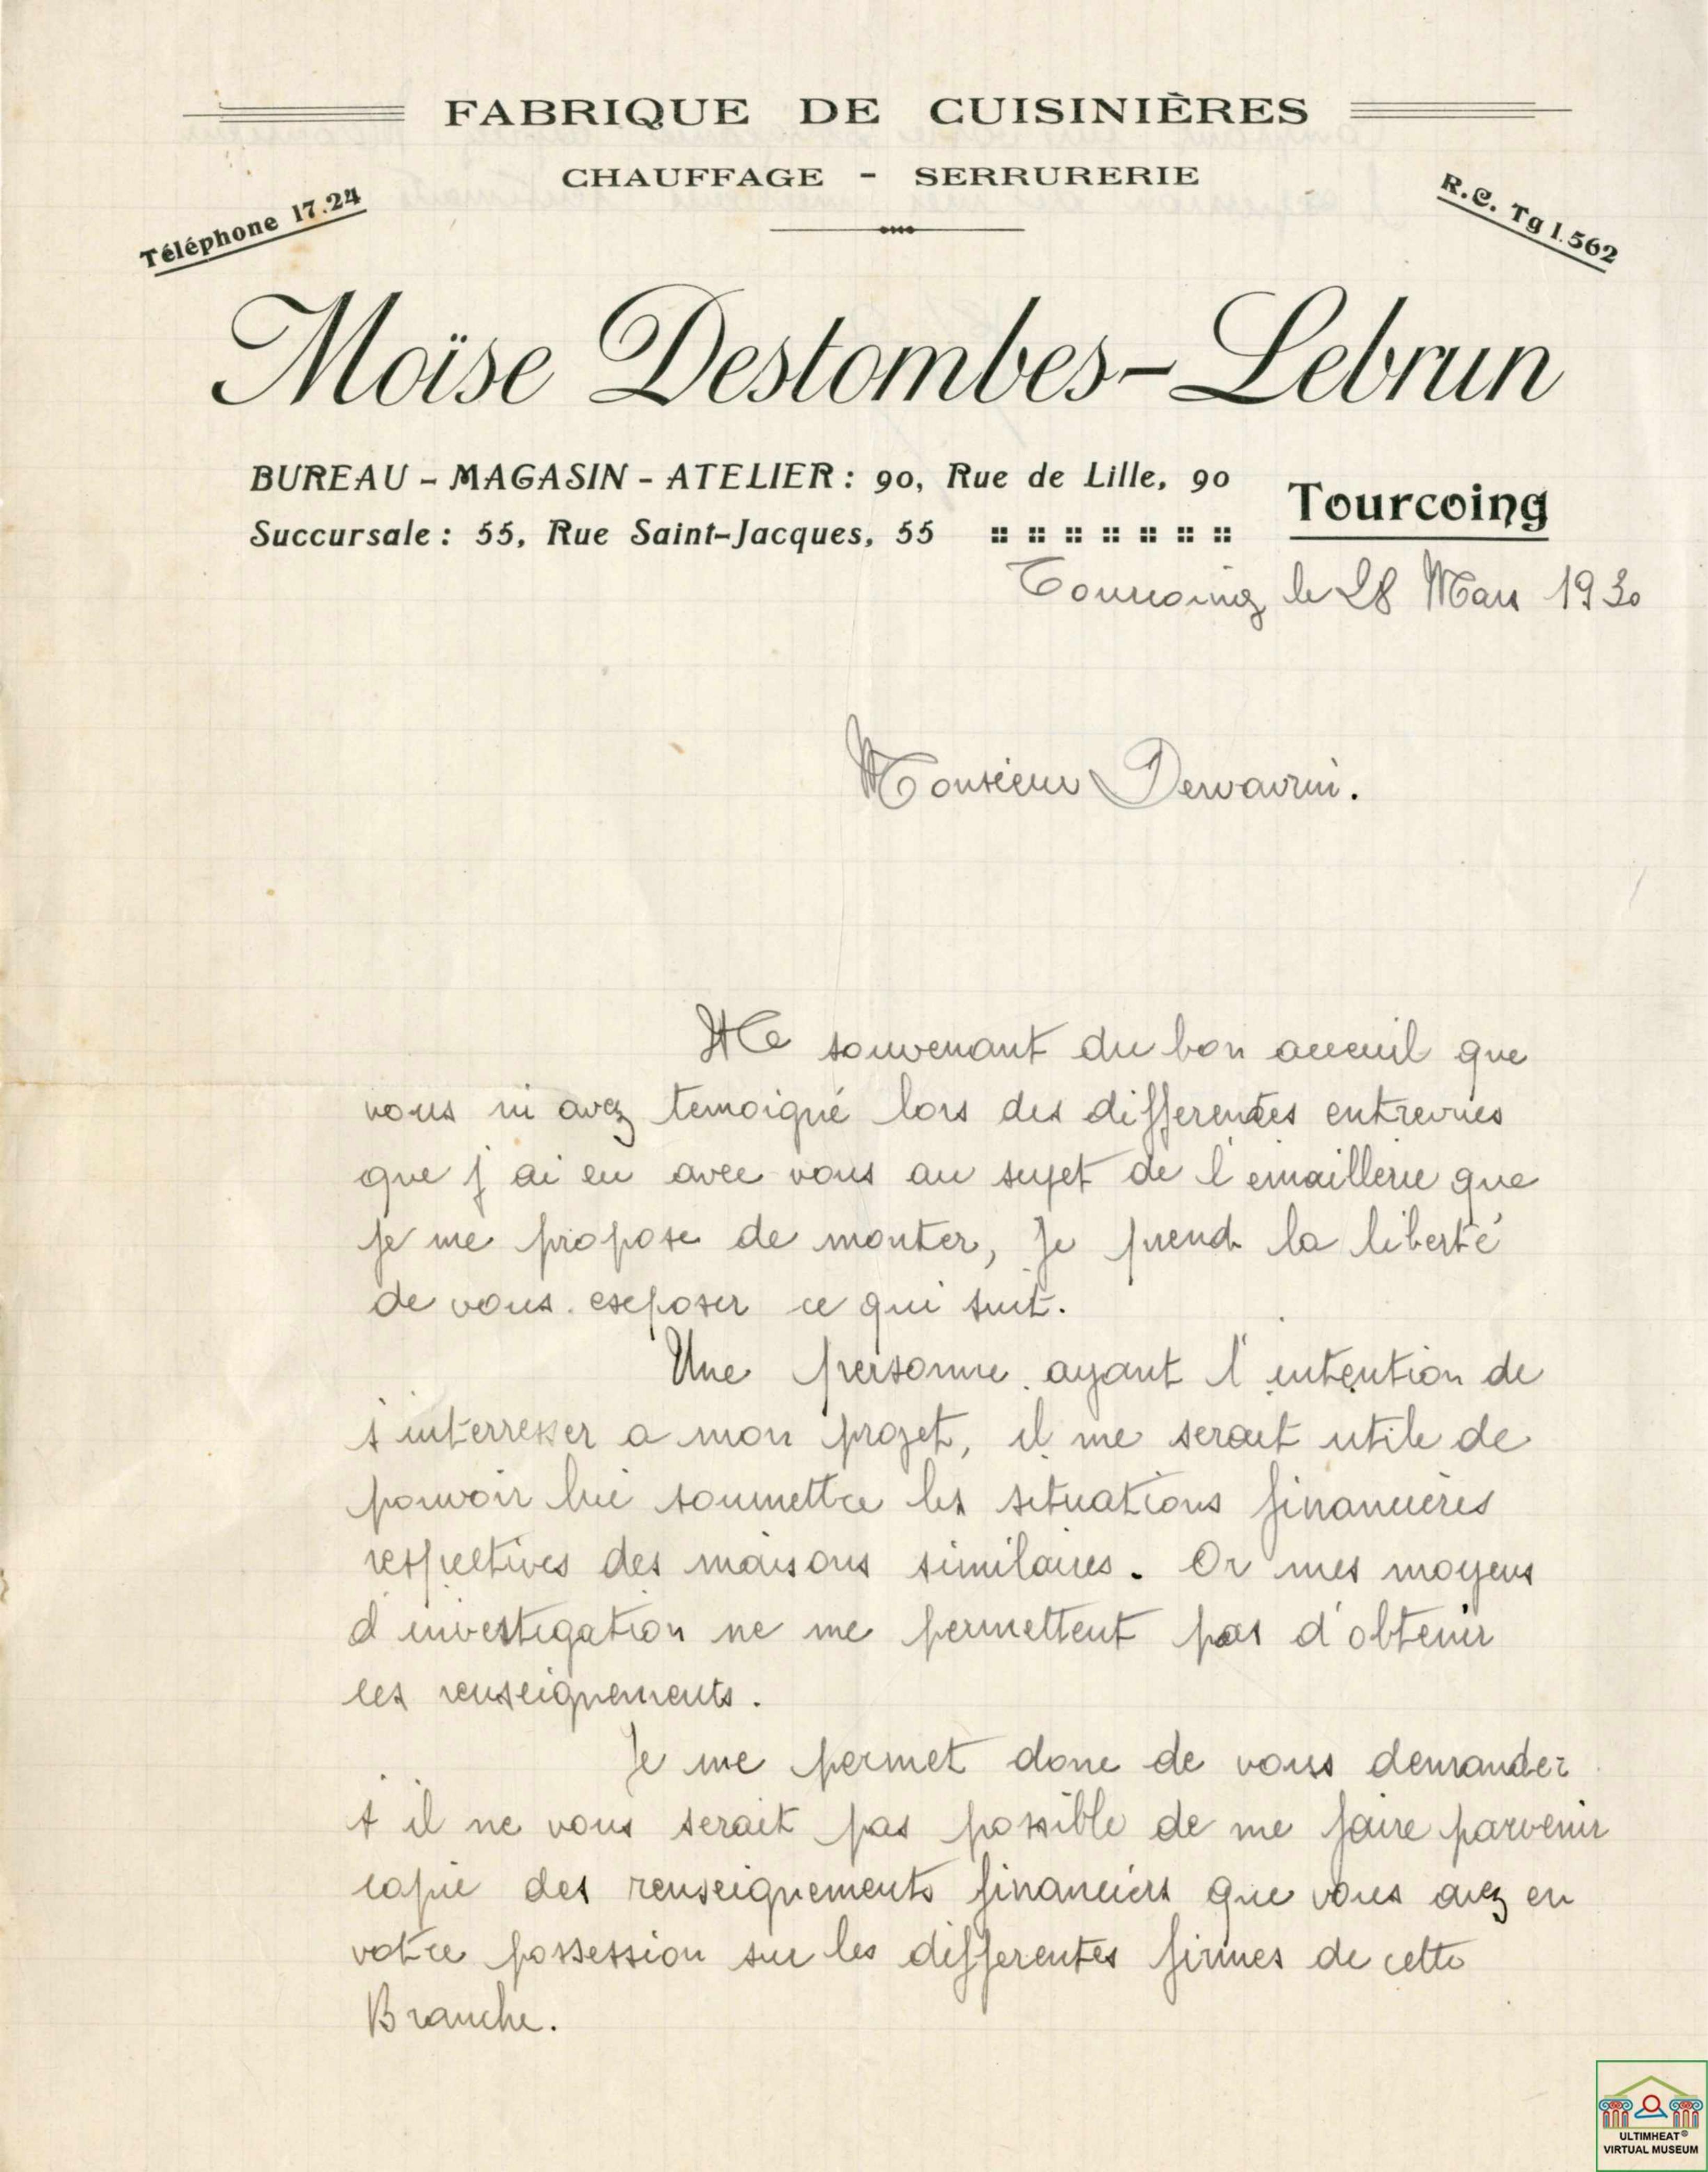 FABRIQUE DE CUISINIÈRES
CHAUFFAGE - SERRURERIE
Téléphone 17.24
R.C. Tg 1.562
Moïse Destombes-Lebrun
BUREAU - MAGASIN - ATELIER : 90, Rue de Lille, 90
Succursale : 55, Rue Saint-Jacques, 55
Tourcoing
Tourcoing le 28 Mars 1930
Monsieur Dervaurin.
Me souvenant du bon acceuil que
vous m avez temoigné lors des differentes entrevues
que j ai eu avec vous au sujet de l emaillerie que
je me propose de monter, je prend la liberté
de vous exposer ce qui suit.
Une personne ayant l'intention de
s interresser a mon projet, il me serait utile de
pouvoir lui soumettre les situations financieres
respectives des maisons similaires. Or mes moyens
d investigation ne me permettent pas d'obtenir
ces renseignements.
Je me permet donc de vous demander
s il ne vous serait pas possible de me faire parvenir
copie des renseignements financiers que vous avez en
votre possession sur les differentes firmes de cette
Branche.
ULTIMHEAT®
VIRTUAL MUSEUM